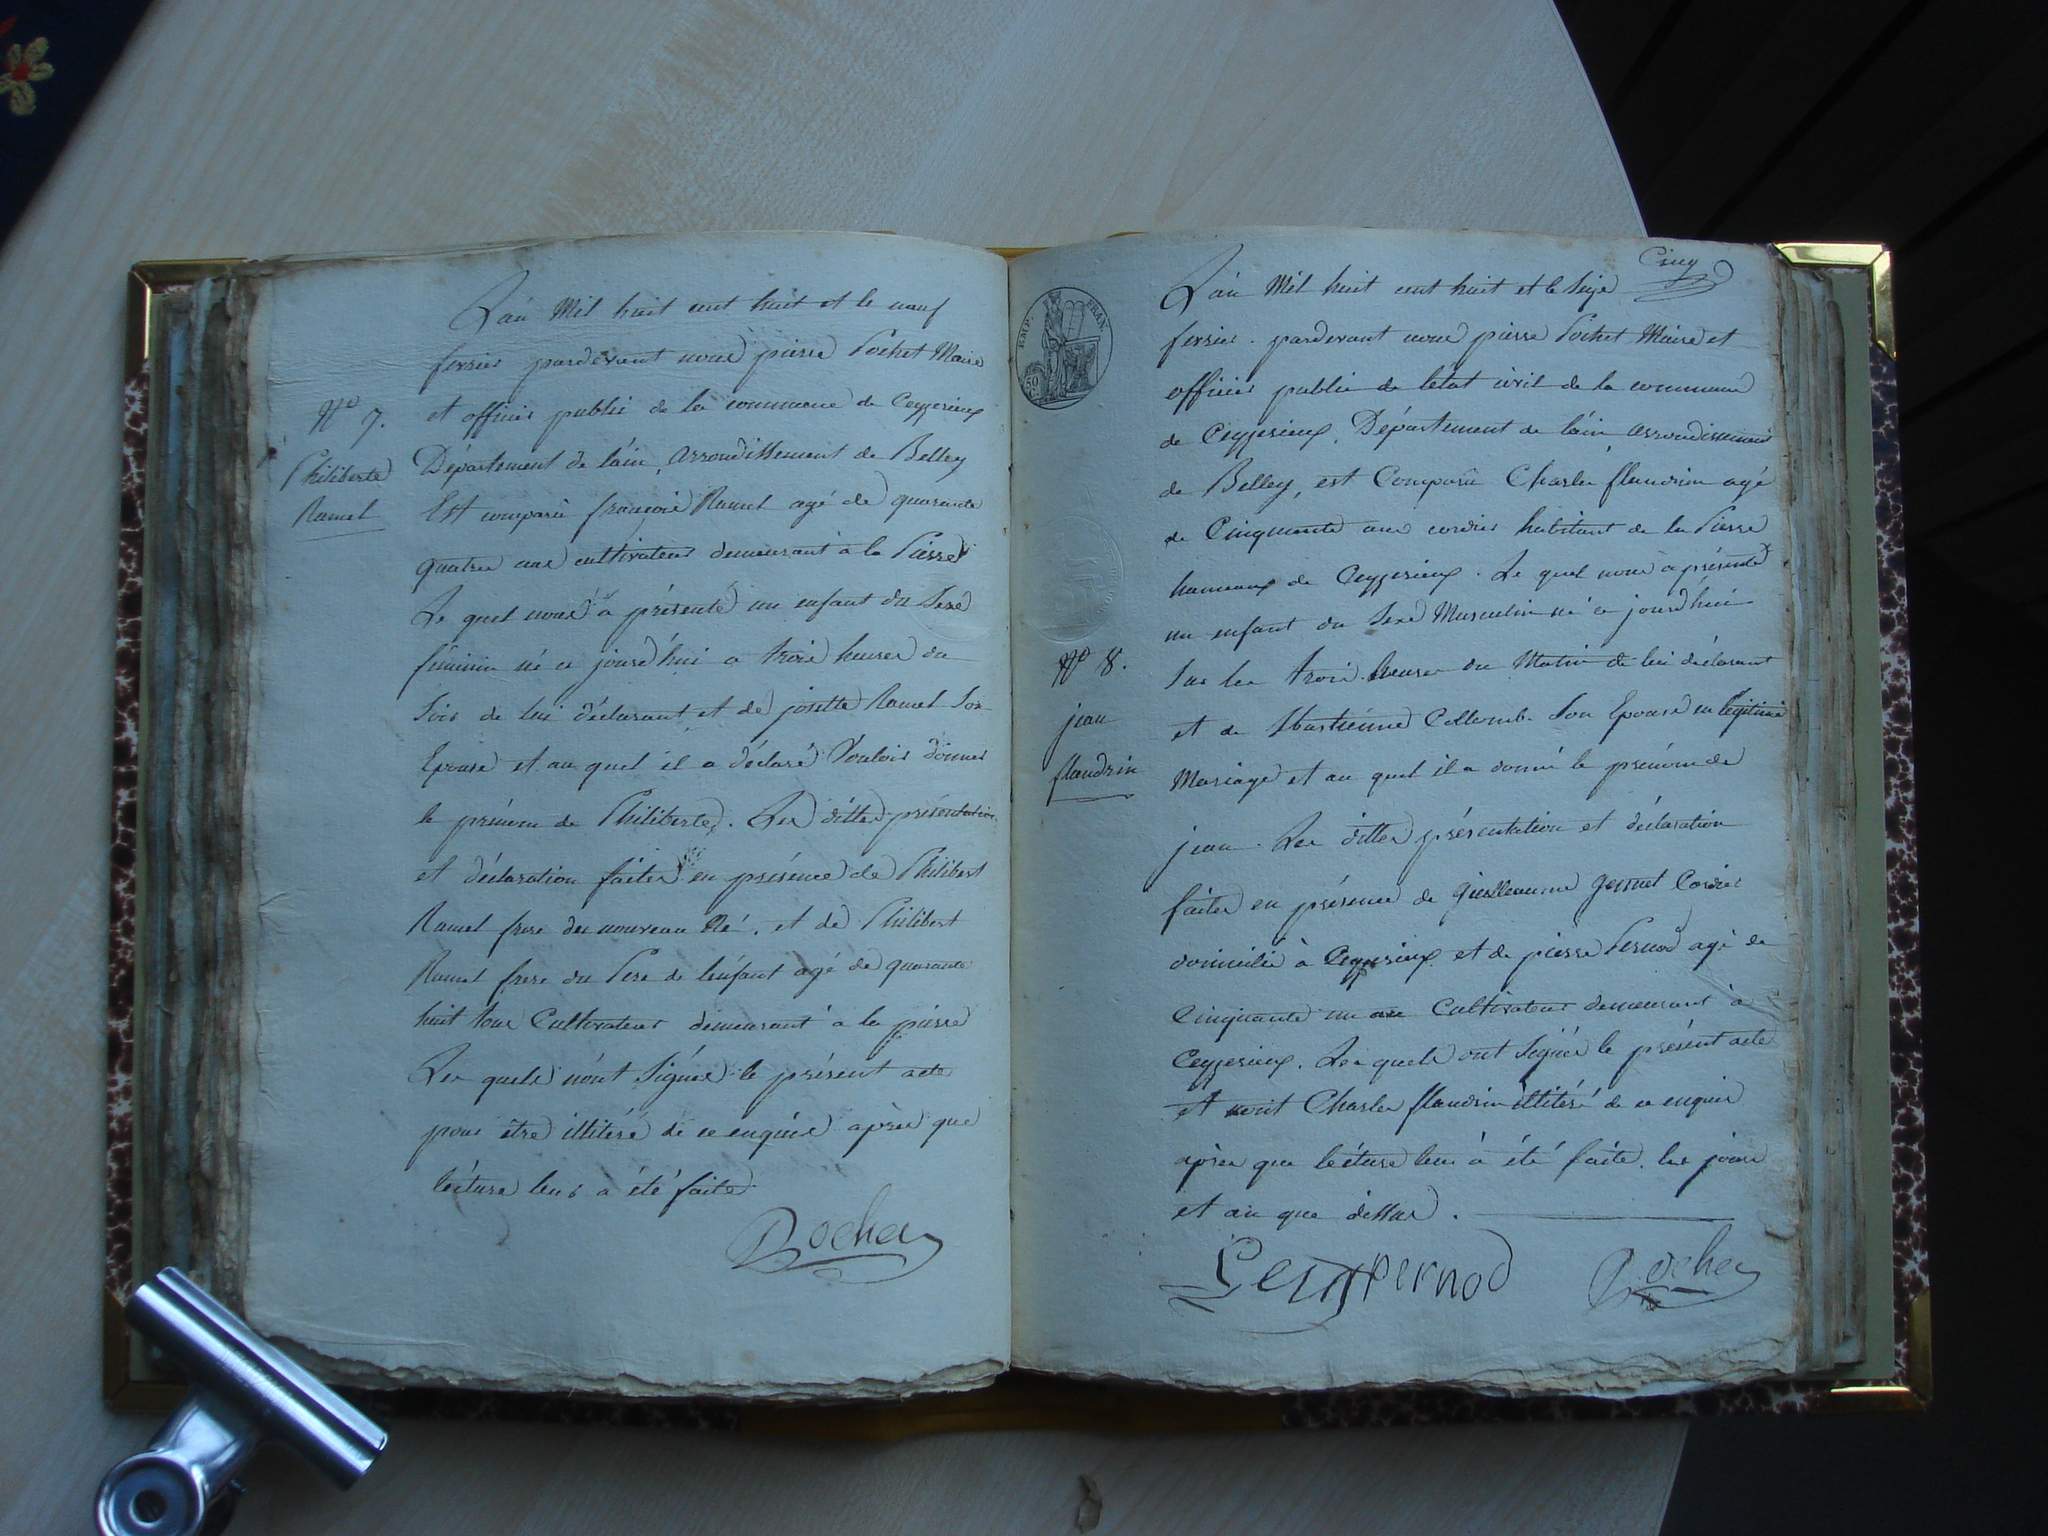 L'an Mil huit cent huit et le neuf
fevrier pardevant nous pierre Pochet Maire
et officier public de la commune de Ceyzerieux
Département de l'ain, arrondissement de Belley
Est comparu françois Ramel agé de quarante
quatre ans cultivateur demeurant à la Pierre
Le quel nous a présenté un enfant du Sexe
féminin né ce jourd'hui a trois heures du
Soir de lui déclarant et de josette Ramel Son
Epouse et au quel il a déclaré Vouloir donner
le prénom de Philiberte. Les dittes présentation
et déclaration faites en présence de Philibert
Ramel frere du nouveau Né, et de Philibert
Ramel frere du Pere de l'enfant agé de quarante
huit tous Cultivateurs demeurant a la pierre
Les quels n'ont Signés le présent acte
pour être illitéré de ce enquis après que
lecture leur a été faite
N° 7.
Philiberte
Ramel
Pochet
Cinq
L'an Mil huit cent huit et le Seize
fevrier pardevant nous pierre Pochet Maire et
officier public de l'état civil de la commune
de Ceyzerieux, Département de l'ain arrondissement
de Belley, est Comparu Charles flandrin agé
de Cinquante ans cordier habitant de la Pierre
hameaux de Ceyzerieux. Le quel nous à présenté
un enfant du Sexe Masculin né ce jourd'hui
Sur les trois heures du Matin de lui déclarant
et de Sbastienne Collomb Son Epouse en légitime
Mariage et au quel il a donné le prénom de
jean. Les dittes présentation et déclaration
faites en présence de Guilleaume Cordier
domicilié à Ceyzerieux et de pierre Pernod agé de
Cinquante un ans Cultivateur demeurant à
Ceyzerieux. Les quels ont Signés le présent acte
et non Charles flandrin illitéré de ce enquis
après que lécture leur à été faite. les jour
et an que dessus.
EMP. FRAN.
50
N° 8.
jean
flandrin
pernod
Pochet